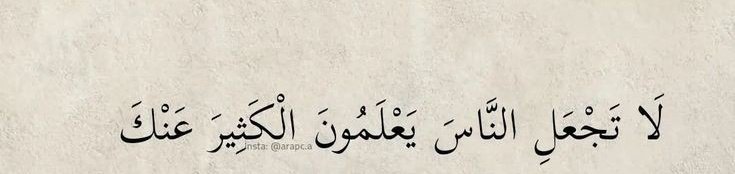 لَا تَجْعَلِ النَّاسَ يَعْلَمُونَ الْكَثِيرَ عَنْكَ
Insta: @arapc.a